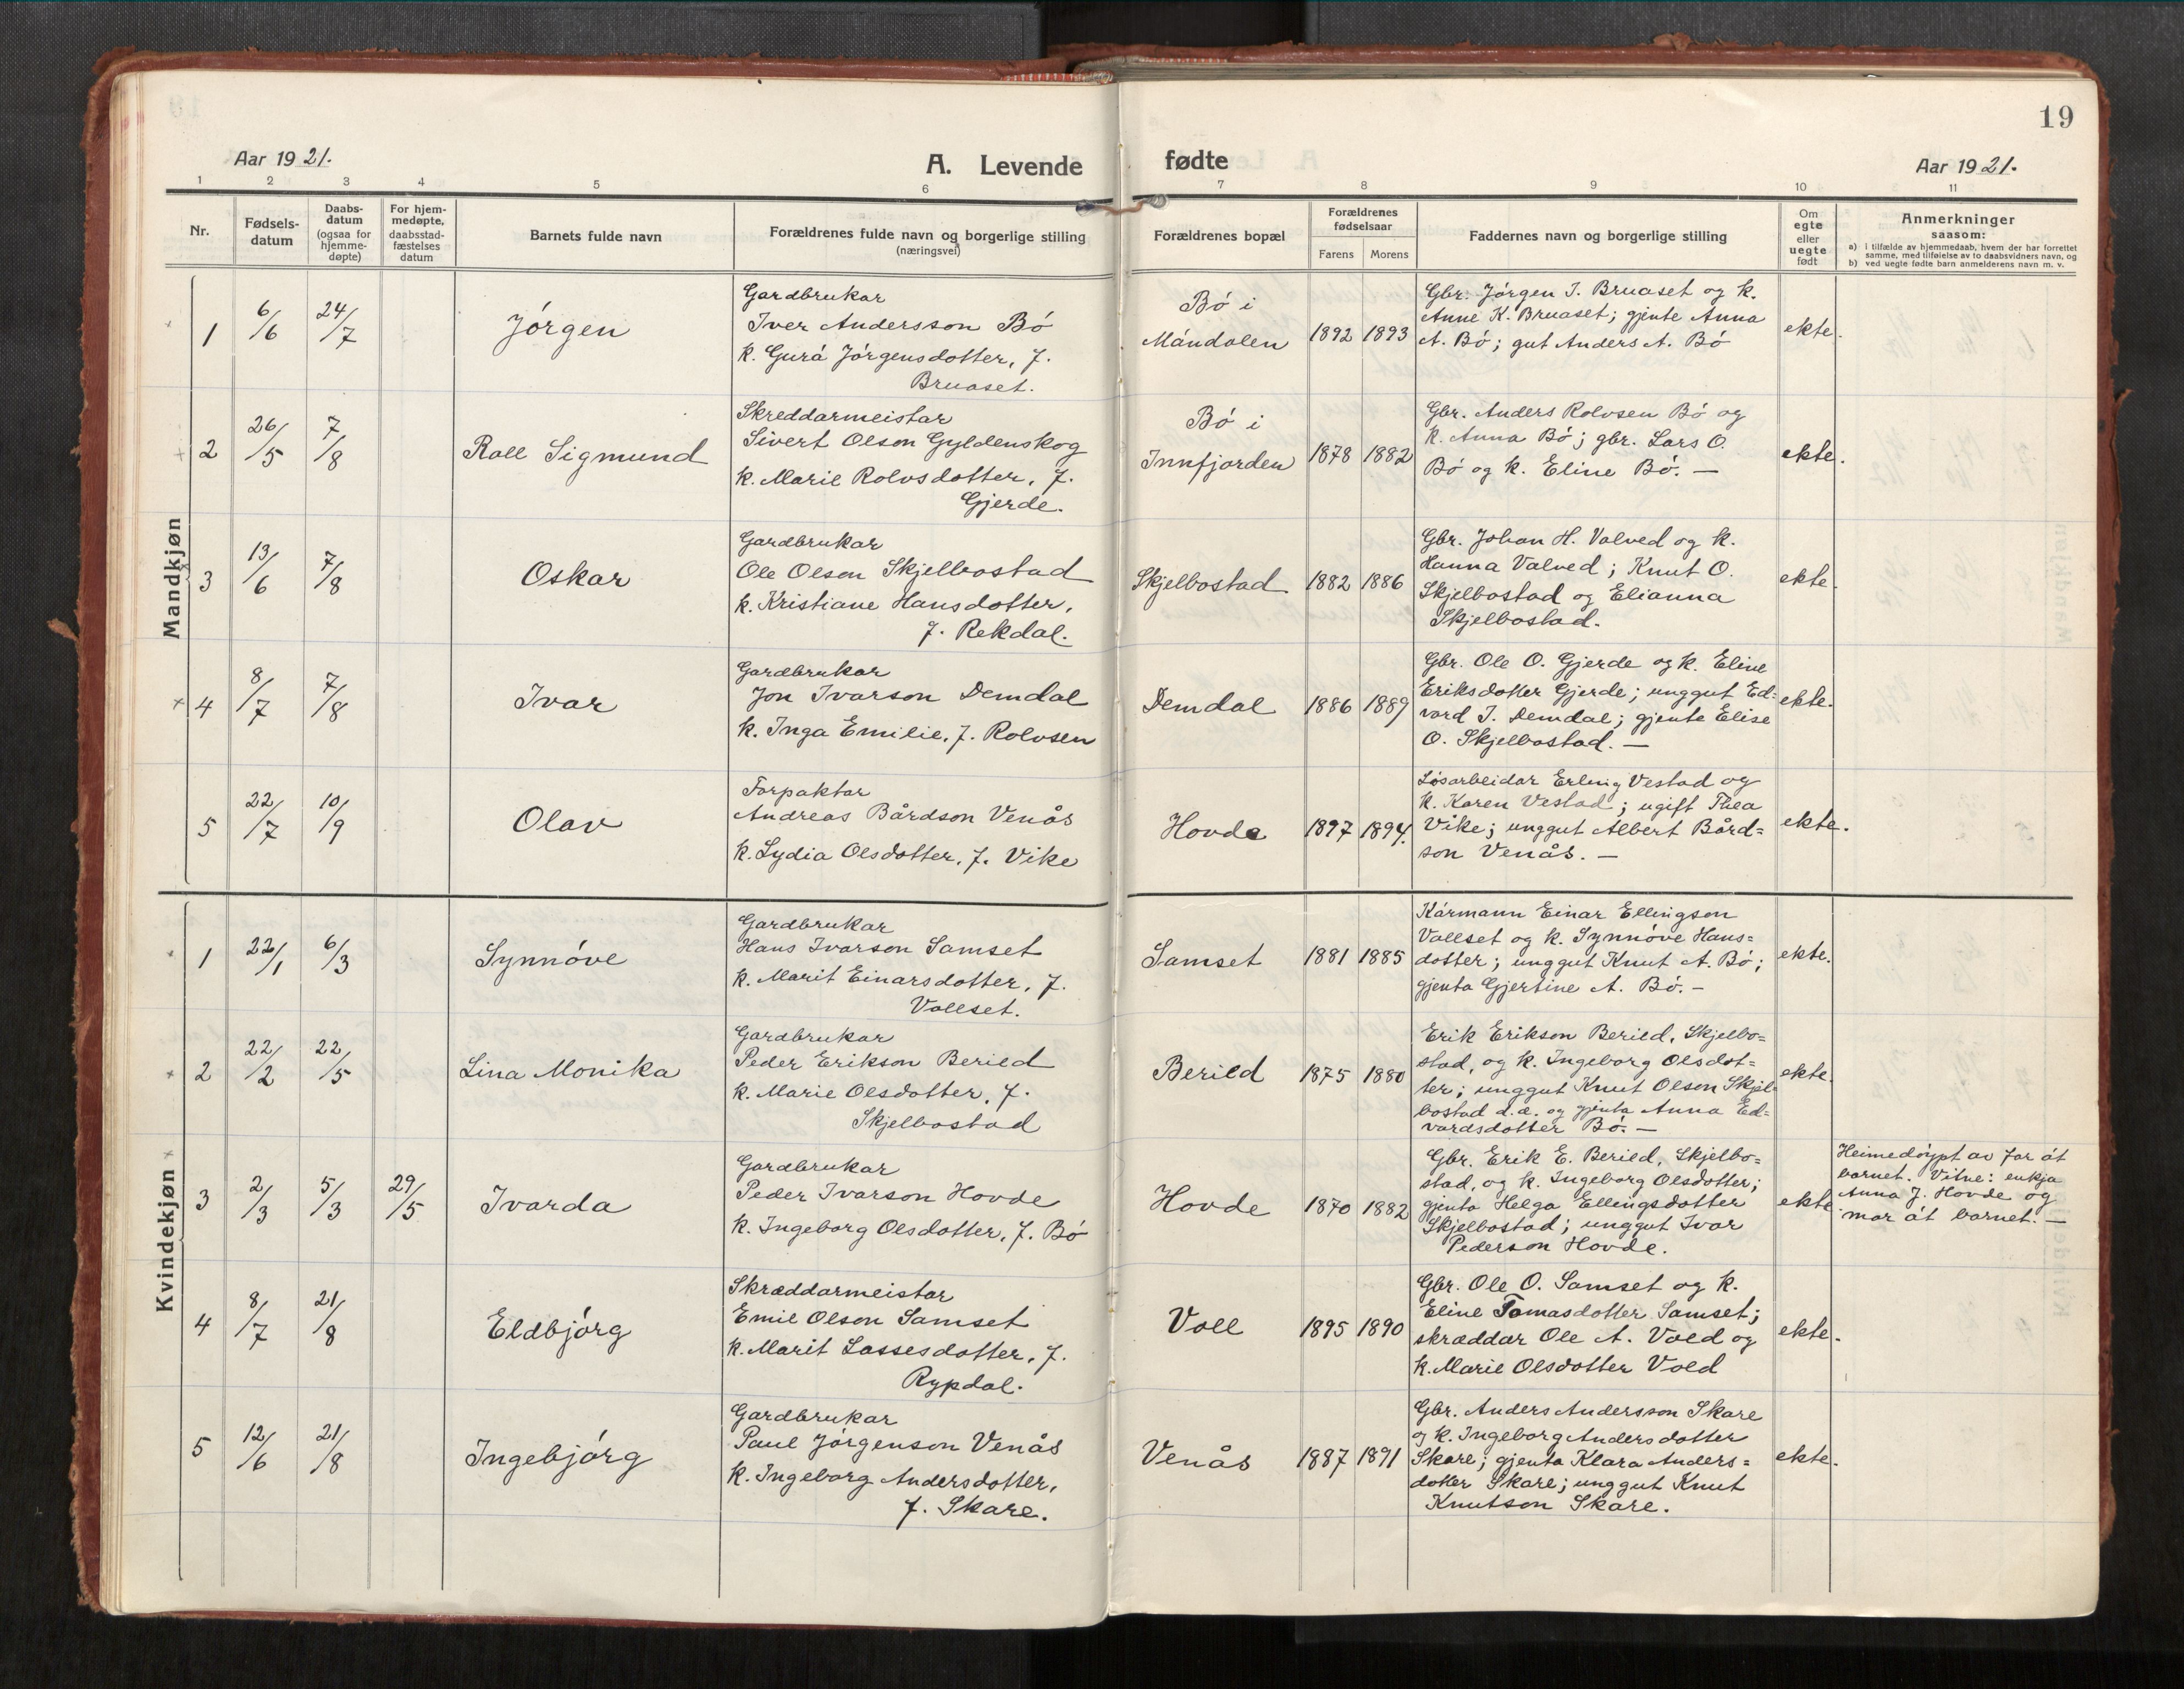 19
Aar 1921.
A. Levende fødte
Aar 1921.
1 2 3 4 5 6 7 8 9 10 11
Nr.
Fødsels-
datum
Daabs-
datum
(ogsaa for
hjemme-
døpte)
For hjem-
medøpte,
daabsstad-
fæstelses
datum
Barnets fulde navn
Forældrenes fulde navn og borgerlige stilling
(næringsvei)
Forældrenes bopæl
Forældrenes
fødselsaar
Farens Morens
Faddernes navn og borgerlige stilling
Om
egte
eller
uegte
født
Anmerkninger
saasom:
a) i tilfælde av hjemmedaab, hvem der har forrettet
samme, med tilføielse av to daabsvidners navn, og
b) ved uegte fødte barn anmelderens navn m. v.
Mandkjøn
1 6/6 24/7 Jórgen
Gardbrukar
Iver Andersson Bó
k. Gurá Jórgensdotter, f.
Bruaset.
Bó i
Mándalen
1892 1893
Gbr. Jórgen J. Bruaset og k.
Anne K. Bruaset; gjente Anna
A. Bó; gut Anders A. Bó
ekte.
2 26/5 7/8 Roll Sigmund
Skreddarmeistar
Sivert Olson Gyldenskog
k. Marie Rolvsdotter, f.
Gjerde.
Bó i
Innfjorden
1878 1882
Gbr. Anders Rolvsen Bó og
k. Anna Bó; gbr. Lars O.
Bó og k. Eline Bó. —
ekte.
3 13/6 7/8 Oskar
Gardbrukar
Ole Olson Skjelbostad
k. Kristiane Hansdotter,
f. Rekdal.
Skjelbostad
1882 1886
Gbr. Johan H. Valved og k.
Hanna Valved; Knut O.
Skjelbostad og Elianna
Skjelbostad.
ekte.
4 8/7 7/8 Ivar
Gardbrukar
Jon Ivarson Demdal
k. Inga Emilie, f. Rolvsen
Demdal
1886 1889
Gbr. Ole O. Gjerde og k. Eline
Eriksdotter Gjerde; unggut Ed=
vard J. Demdal; gjente Elise
O. Skjelbostad. —
ekte.
5 22/7 10/9 Olav
Forpaktar
Andreas Bårdson Venås
k. Lydia Olsdotter, f. Vike
Hovde
1897 1894.
Lósarbeidar Erling Vestad og
k. Karen Vestad; ugift Thea
Vike; unggut Albert Bård=
son Venås. —
ekte.
Kvindekjøn
1 22/1 6/3 Synnóve
Gardbrukar
Hans Ivarson Samset
k. Marit Einarsdotter, f.
Vollset.
Samset
1881 1885
Kármann Einar Ellingson
Vollset og k. Synnóve Hans=
dotter; unggut Knut A. Bó;
gjenta Gjertine A. Bó. —
ekte.
2 22/2 22/5 Lina Monika
Gardbrukar
Peder Erikson Berild
k. Marie Olsdotter, f.
Skjelbostad
Berild
1875 1880
Erik Erikson Berild, Skjelbo=
stad, og k. Ingeborg Olsdot=
ter; unggut Knut Olson Skjel=
bostad d. e. og gjenta Anna Ed=
vardsdotter Bó. —
ekte.
3 2/3 5/3 29/5 Ivarda
Gardbrukar
Peder Ivarson Hovde
k. Ingeborg Olsdotter, f. Bó
Hovde
1870 1882
Gbr. Erik E. Berild, Skjelbo=
stad, og k. Ingeborg Olsdotter;
gjenta Helga Ellingsdotter
Skjelbostad; unggut Ivar
Pederson Hovde.
ekte
Heimedóypt av far át
barnet. Vitne: enkja
Anna J. Hovde og
mor át barnet. —
4 8/7 21/8 Eldbjórg
Skræddarmeistar
Emil Olson Samset
k. Marit Lassesdotter, f.
Rypdal.
Voll
1895 1890
Gbr. Ole O. Samset og k.
Eline Tomasdotter Samset;
skræddar Ole A. Vold og
k. Marie Olsdotter Vold
ekte.
5 12/6 21/8 Ingebjórg
Gardbrukar
Paul Jórgenson Venås
k. Ingeborg Andersdotter,
f. Skare.
Venås
1887 1891
Gbr. Anders Andersson Skare
og k. Ingeborg Andersdotter
Skare; gjenta Klara Anders=
dotter Skare; unggut Knut
Knutson Skare.
ekte.